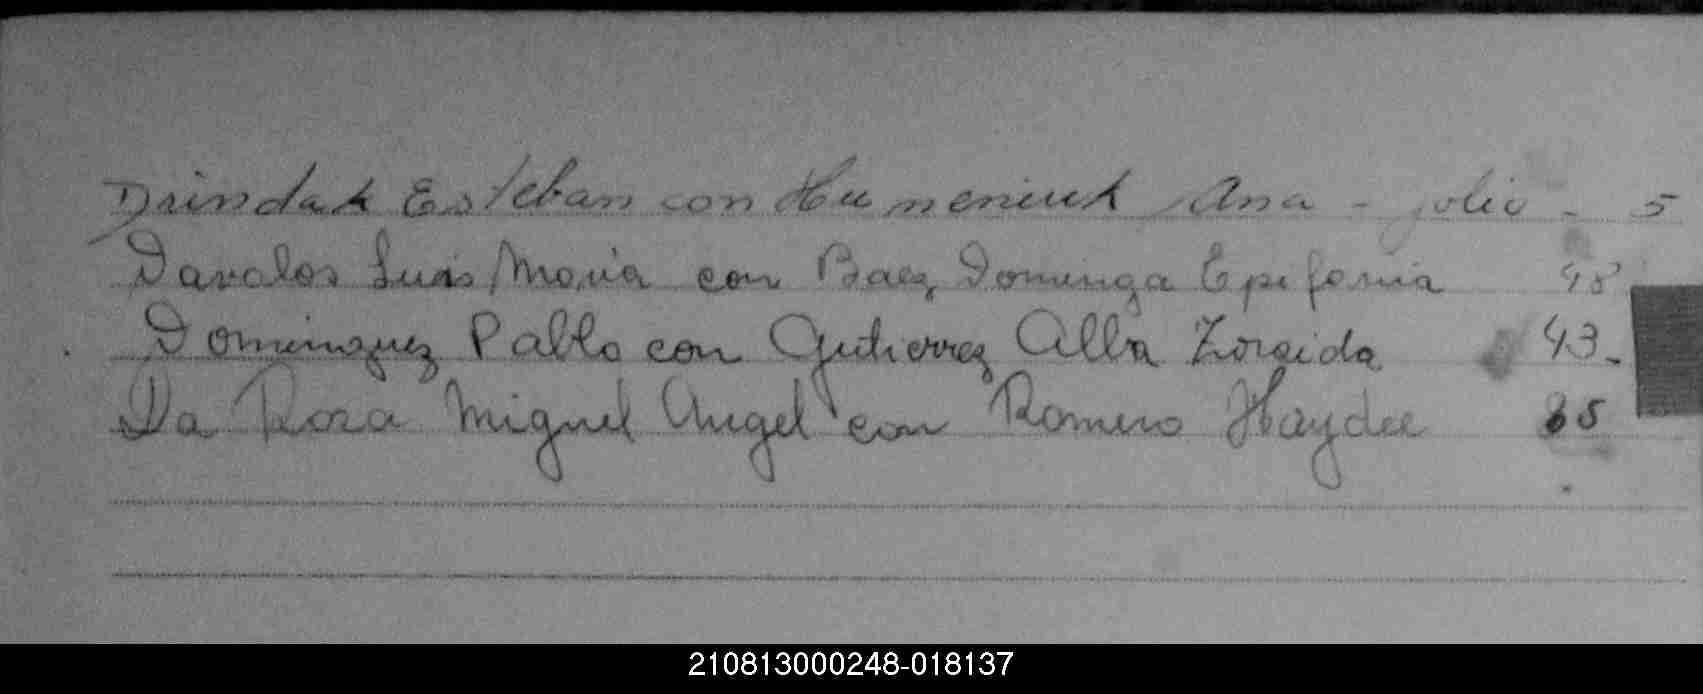 Drindak Esteban con Humeniuk Ana - folio - 5
Davalos Luis Maria con Baez Dominga Epifania 48
Dominguez Pablo con Gutierrez Alba Zoraida 43-
Da Rosa Miguel Angel con Romero Haydee 85
210813000248-018137